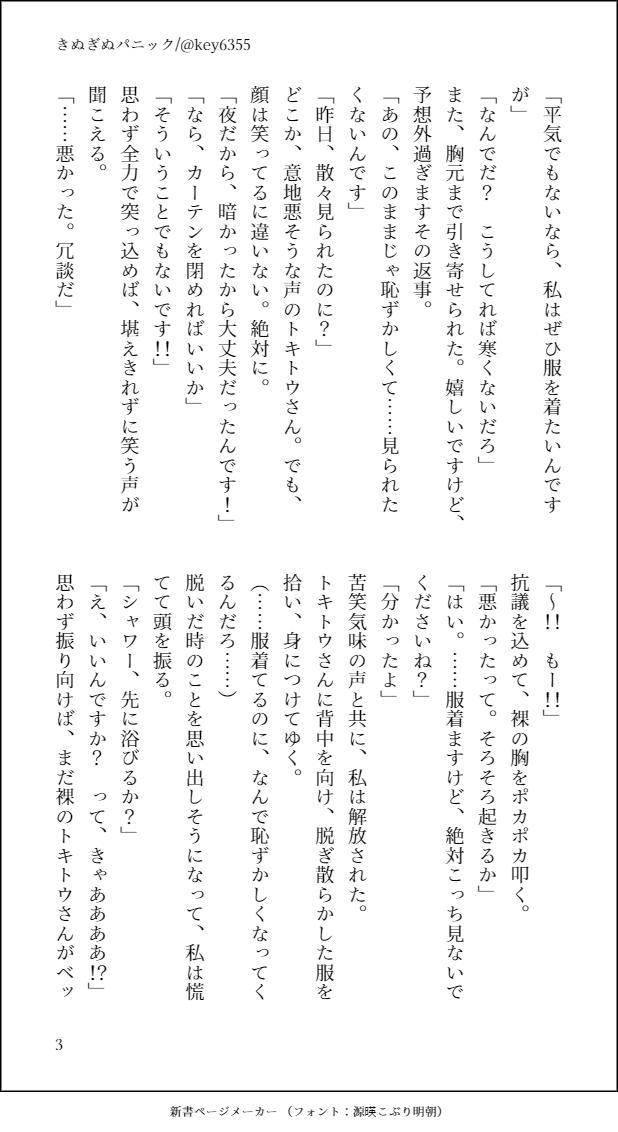 きぬぎぬパニック/@key6355
「平気でもないなら、私はぜひ服を着たいんです
が」
「なんでだ？　こうしてれば寒くないだろ」
また、胸元まで引き寄せられた。嬉しいですけど、
予想外過ぎますその返事。
「あの、このままじゃ恥ずかしくて……見られた
くないんです」
「昨日、散々見られたのに？」
どこか、意地悪そうな声のトキトウさん。でも、
顔は笑ってるに違いない。絶対に。
「夜だから、暗かったから大丈夫だったんです！」
「なら、カーテンを閉めればいいか」
「そういうことでもないです!!」
思わず全力で突っ込めば、堪えきれずに笑う声が
聞こえる。
「……悪かった。冗談だ」
「～!!　もー!!」
抗議を込めて、裸の胸をポカポカ叩く。
「悪かったって。そろそろ起きるか」
「はい。……服着ますけど、絶対こっち見ないで
くださいね？」
「分かったよ」
苦笑気味の声と共に、私は解放された。
トキトウさんに背中を向け、脱ぎ散らかした服を
拾い、身につけてゆく。
（……服着てるのに、なんで恥ずかしくなってく
るんだろ……）
脱いだ時のことを思い出しそうになって、私は慌
てて頭を振る。
「シャワー、先に浴びるか？」
「え、いいんですか？　って、きゃああああ!?」
思わず振り向けば、まだ裸のトキトウさんがベッ
3
新書ページメーカー（フォント：源暎こぶり明朝）